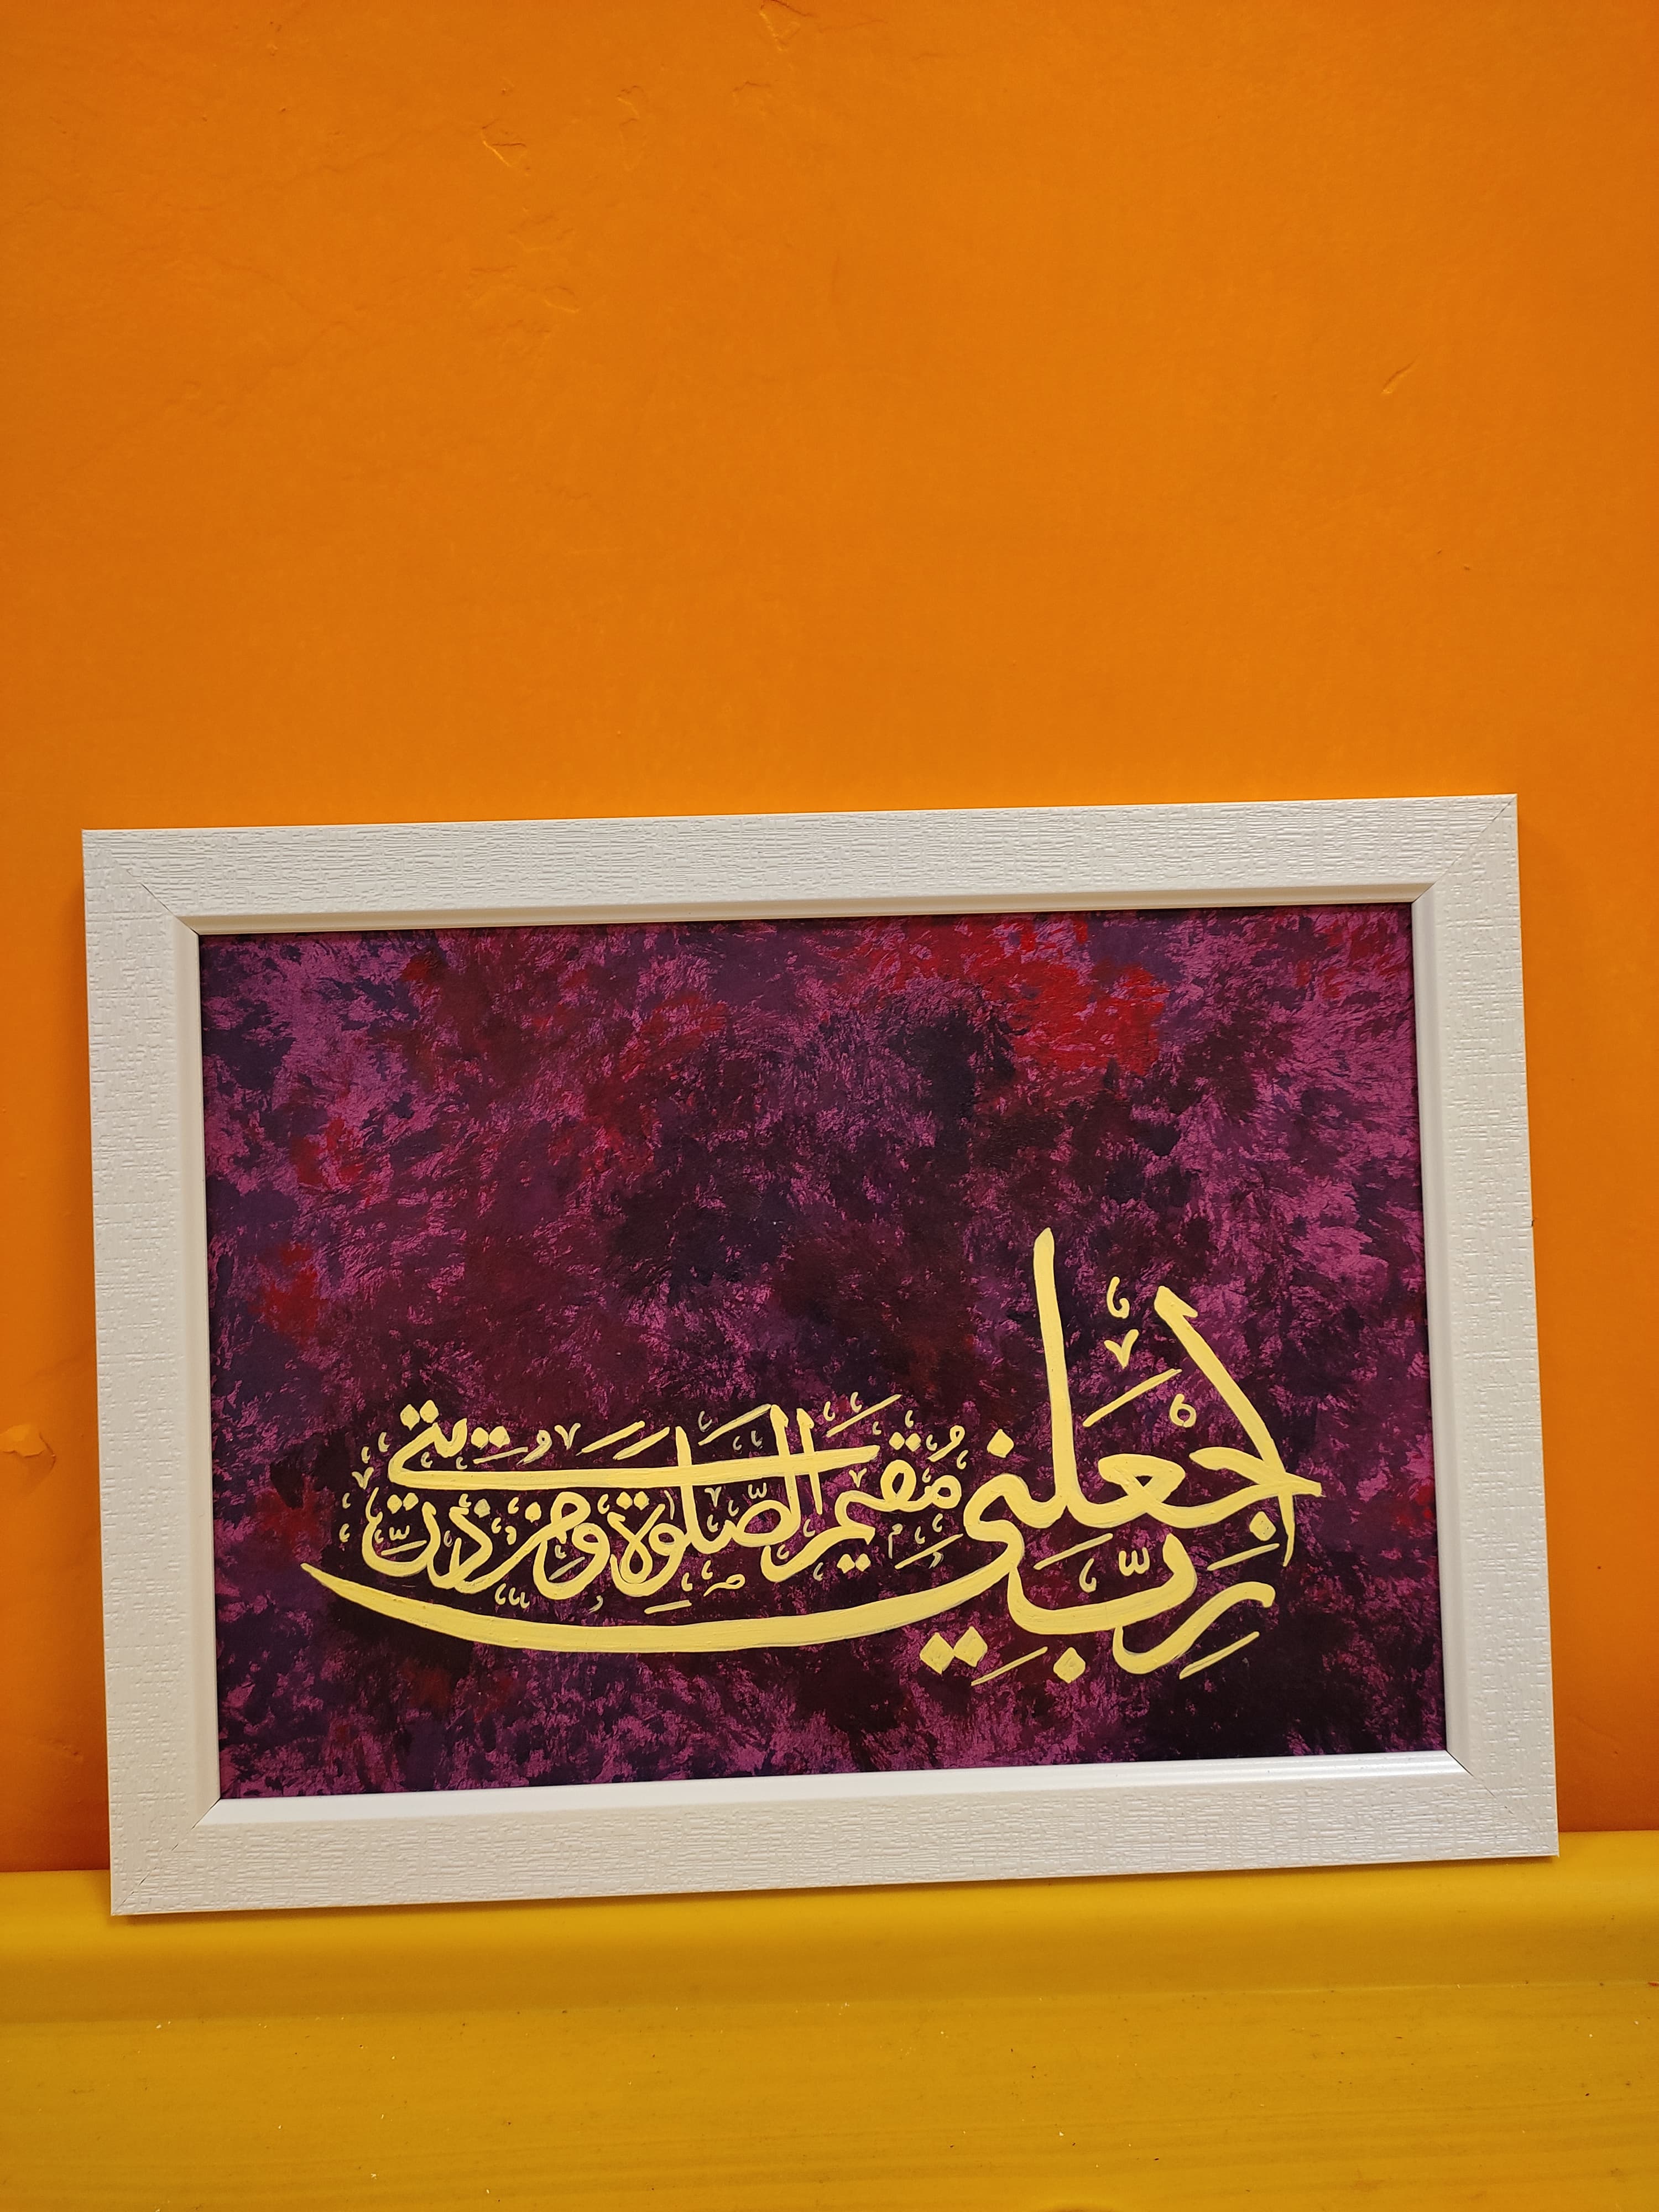 رَبِّ اجْعَلْنِي مُقِيمَ الصَّلٰوةِ وَمِنْ ذُرِّيَّتِي